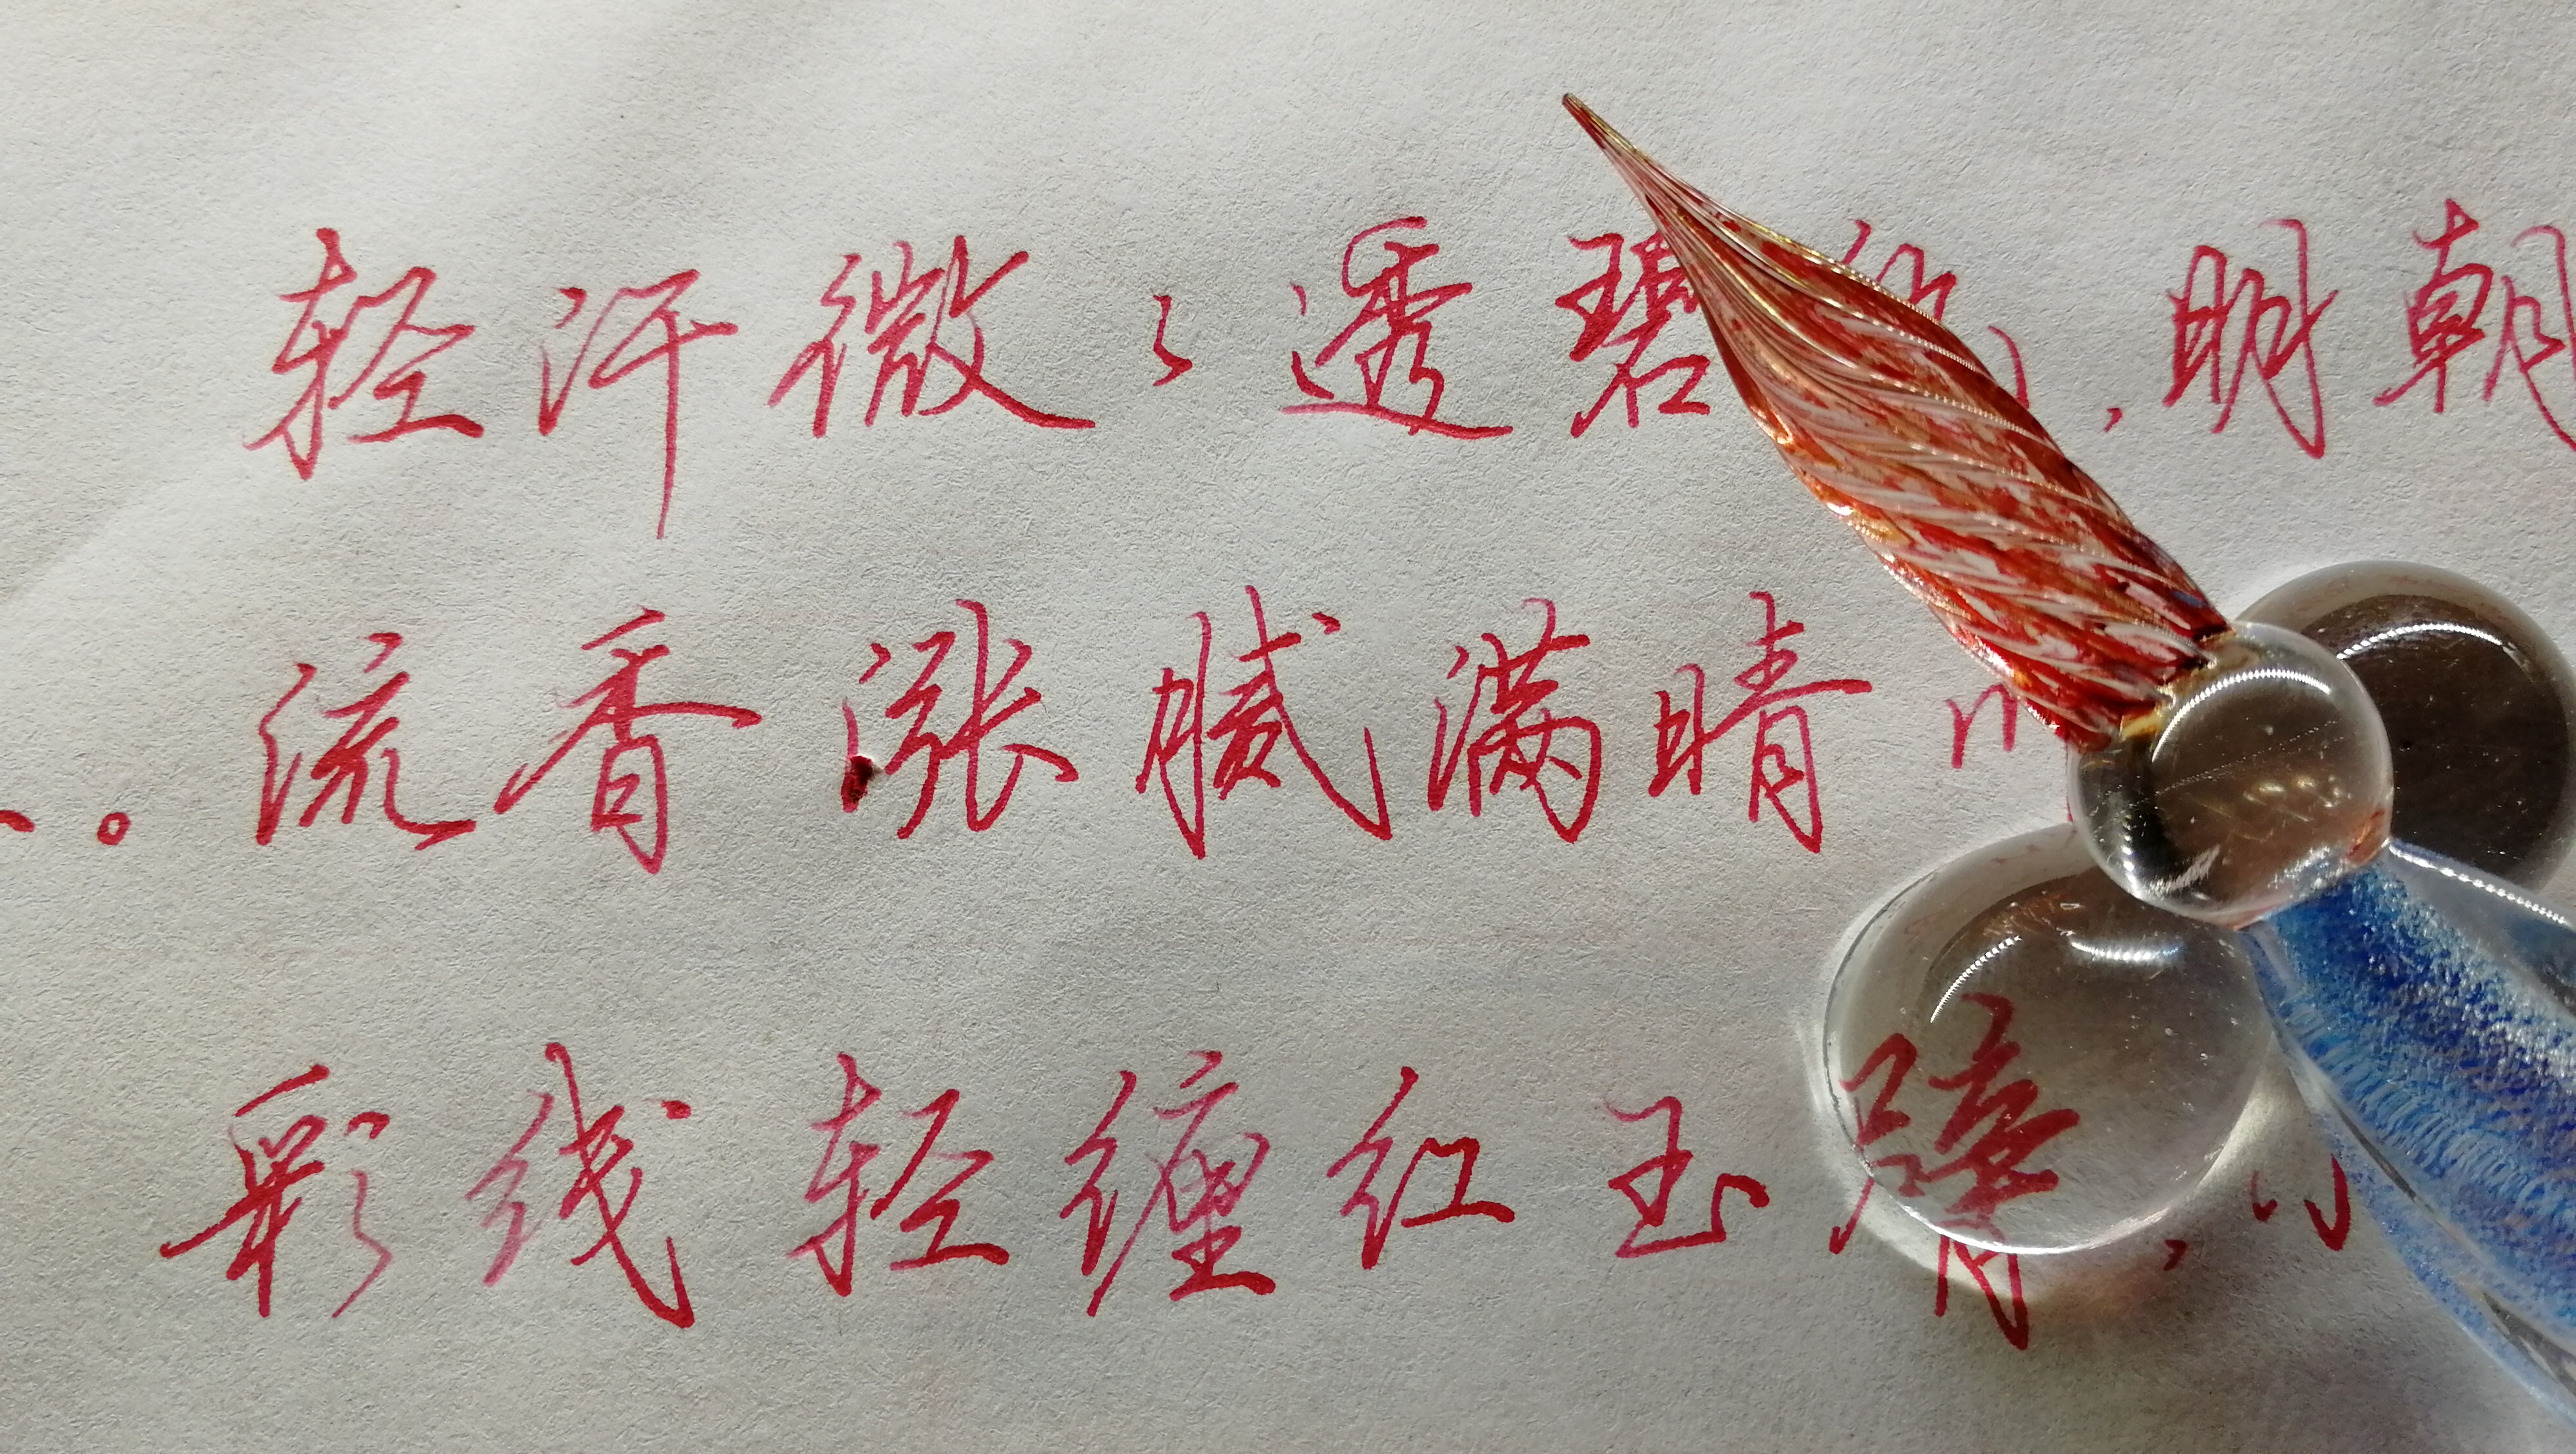 轻汗微〻透碧，明朝
。流香涨腻满晴
彩线轻缠红玉臂，小